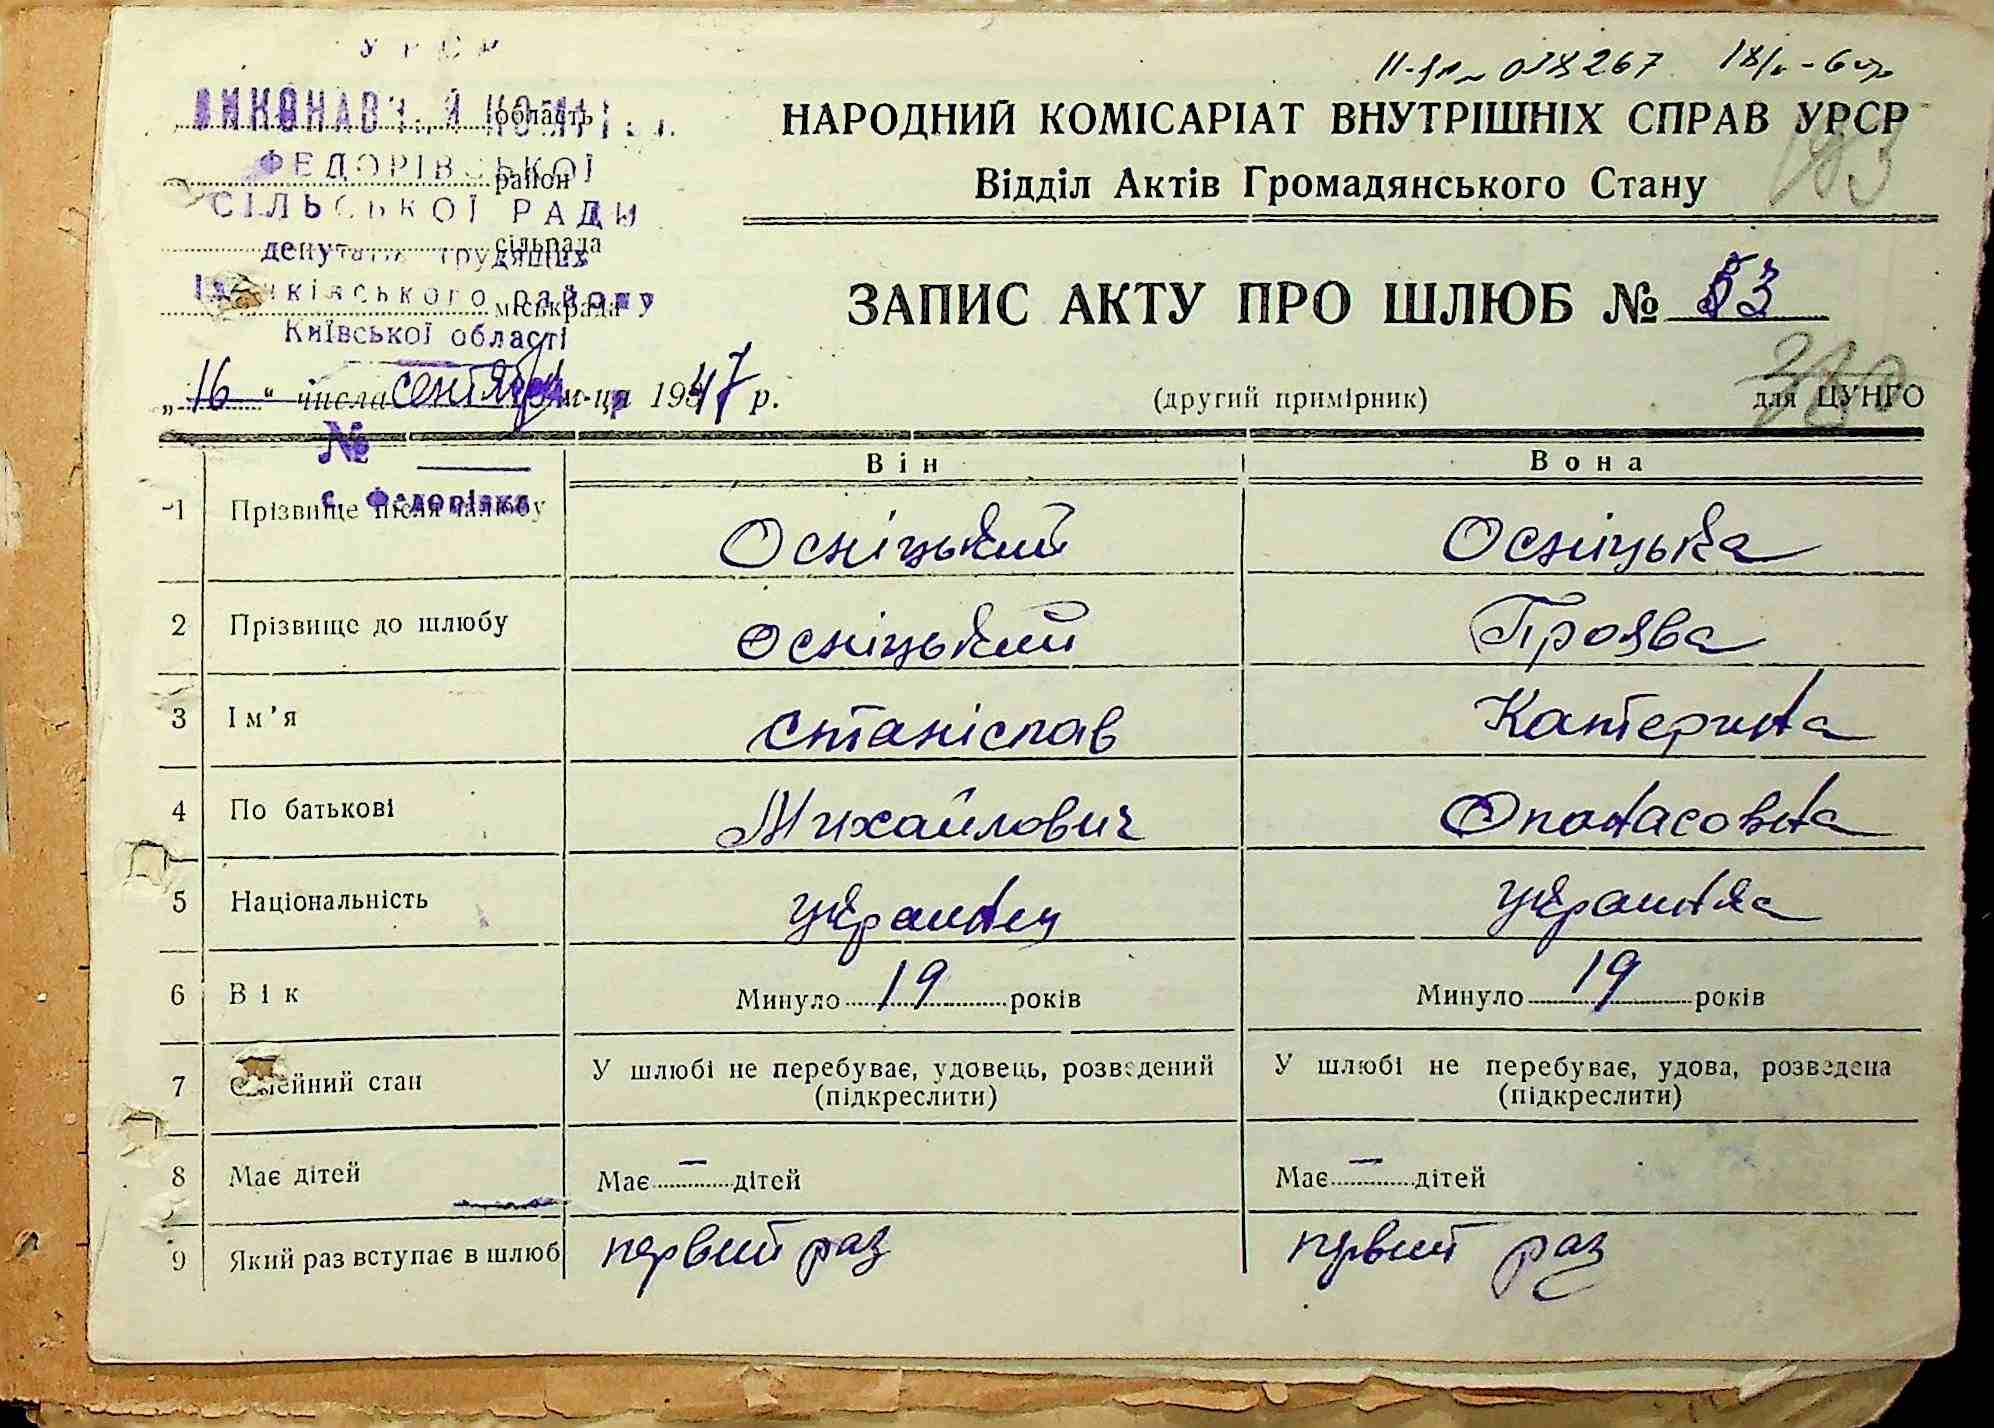 УРСР
038267
ВИКОНАВЧИЙ КОМІТЕТ
область
НАРОДНИЙ КОМІСАРІАТ ВНУТРІШНІХ СПРАВ УРСР
183
ФЕДОРІВСЬКОЇ
район
Відділ Актів Громадянського Стану
СІЛЬСЬКОЇ РАДИ
сільрада
депутатів трудящих
району
міськрада
ЗАПИС АКТУ ПРО ШЛЮБ № 53
Київської області
„16“ числа сентября м-ця 1947 р.
(другий примірник)
для ЦУНГО
№
с. Федорівка
Він
Вона
1 Прізвище після шлюбу Осніцький Осніцька
2 Прізвище до шлюбу Осніцький Проява
3 Ім’я Станіслав Катерина
4 По батькові Михайлович Опанасовна
5 Національність українец українка
6 Вік Минуло 19 років Минуло 19 років
7 Сімейний стан У шлюбі не перебуває, удовець, розведений У шлюбі не перебуває, удова, розведена
(підкреслити) (підкреслити)
8 Має дітей Має — дітей Має — дітей
9 Який раз вступає в шлюб первий раз первий раз